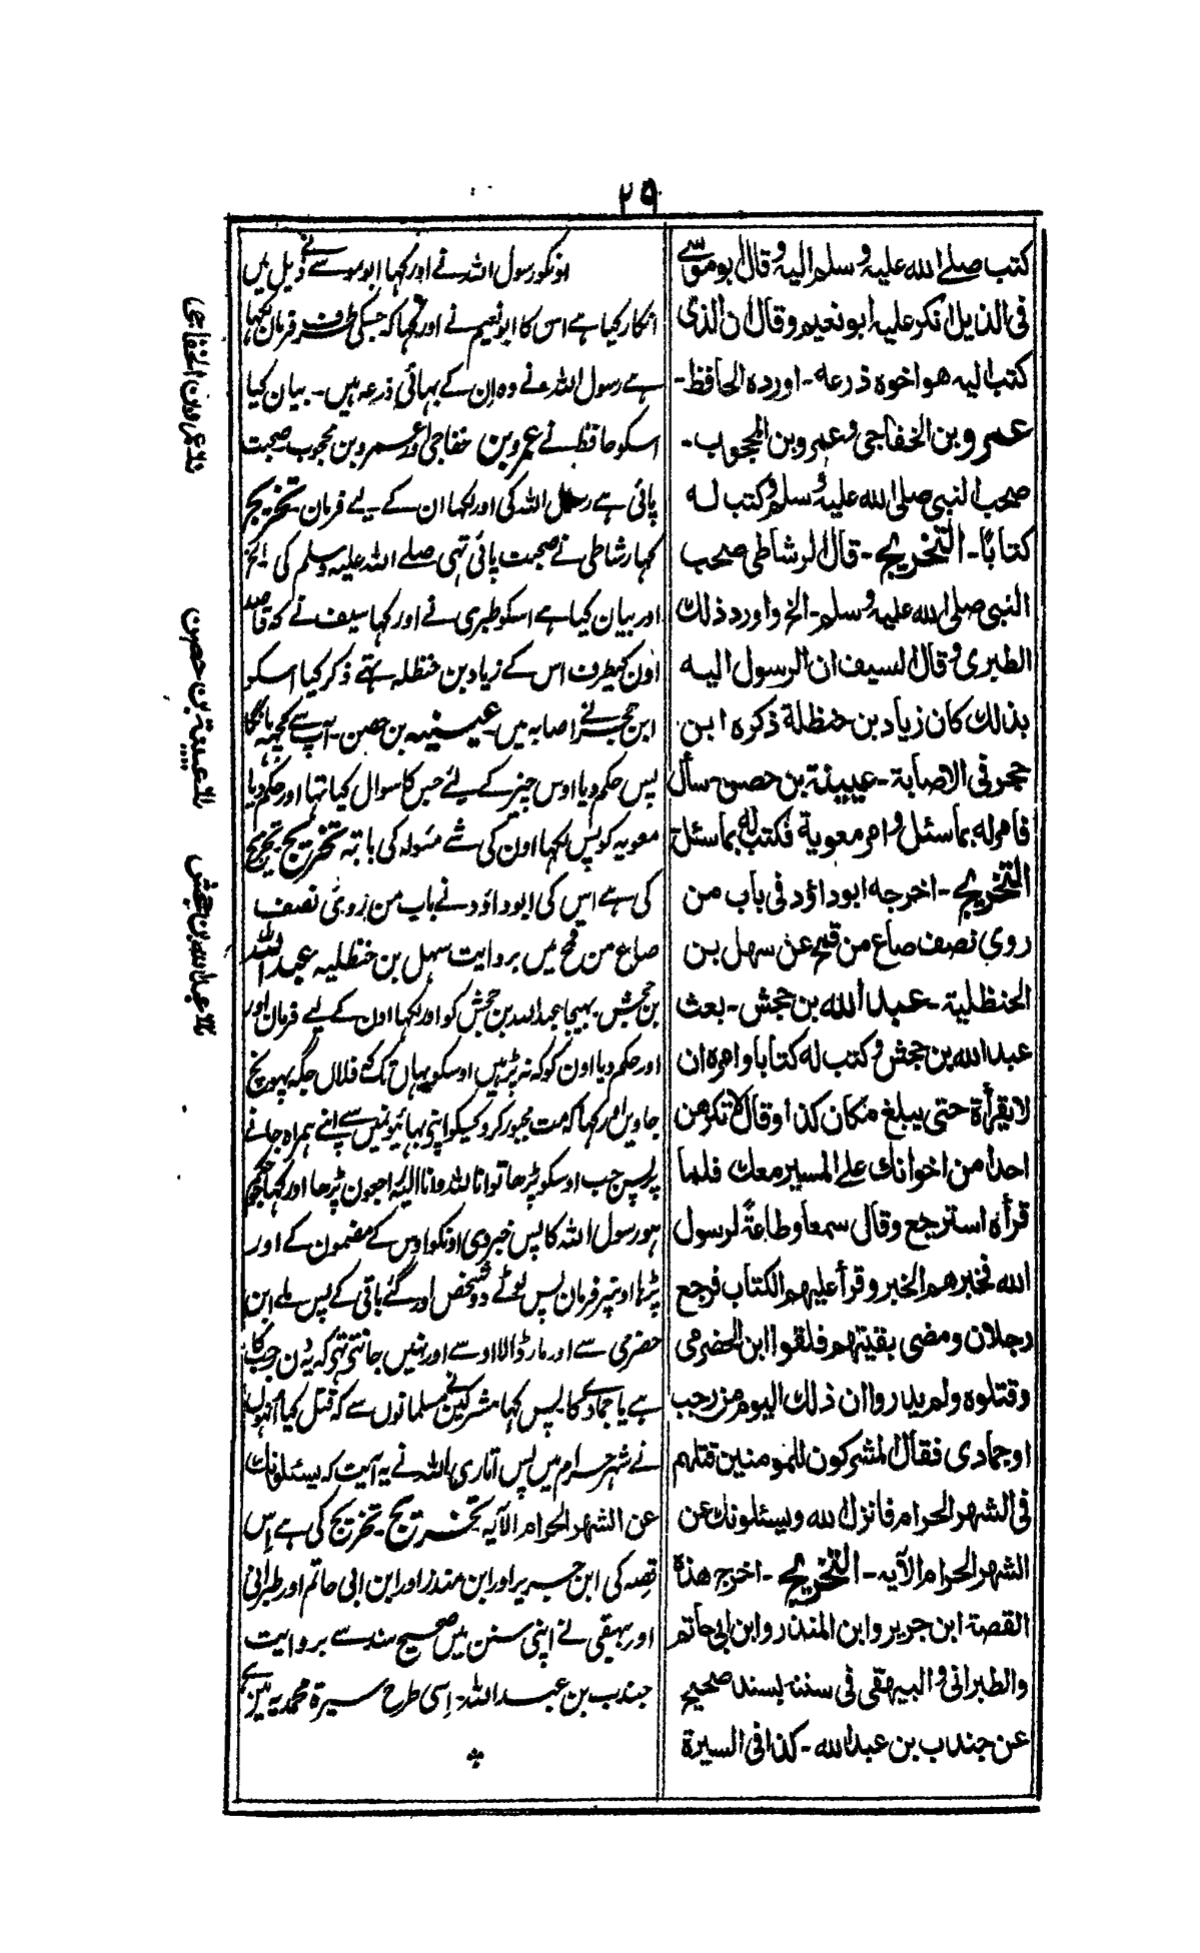 ٢٩
كتب صلے الله عليه وسلم اليه وقال ابو موسےٰ
فى الذيل انكر عليه ابو نعيم وقال ان الذى
كتب اليه هو اخوه ذرعه - اورده الحافظ -
عمرو بن الخفاجى وعمرو بن المحجوب -
صحب النبى صلى الله عليه وسلم وكتب له
كتابًا - التخريج - قال الرشاطى صحب
النبى صلى الله عليه وسلم - الخ واورد ذلك
الطبرى وقال السيف ان الرسول اليه
بذلك كان زياد بن حنظلة ذكره ابن
حجر فى الاصابة - عيينة بن حصن - سأل
فامر له بما سئل وامر معوية فكتب له بما سئل
التخريج - اخرجه ابوداؤد فى باب من
روى نصف صاع من قمح عن سهل بن
الحنظلية - عبد الله بن جحش - بعث
عبد الله بن جحش وكتب له كتابا وامره ان
لا يقرأة حتى يبلغ مكان كذا وقال لا تكرهن
احدا من اخوانك على المسير معك فلما
قرأه استرجع وقال سمعا وطاعةً لرسول
الله فخبرهم الخبر وقرأ عليهم الكتاب فرجع
رجلان ومضى بقيتهم فلقوا ابن الحضرمى
وقتلوه ولم يدروا ان ذلك اليوم من رجب
او جمادى فقال المشركون للمومنين قتلهم
فى الشهر الحرام فانزل الله ويسئلونك عن
الشهر الحرام الآيه - التخريج - اخرج هذه
القصة ابن جرير وابن المنذر وابن ابى حاتم
والطبرانى والبيهقى فى سننه بسند صحيح
عن جندب بن عبد الله - كذا فى السيرة
اونكو رسول اللہ نے اور کہا ابو موسے نے ذیل میں
انکار کیا ہے اس کا ابو نعیم نے اور کہا کہ جسکی طرف فرمان لکہا
ہے رسول اللہ نے وہ ان کے بہائی ذرعہ ہیں - بیان کیا
اسکو حافظ نے عمرو بن خفاجی اور عمرو بن محجوب صحبت
پائی ہے رسول اللہ کی اور لکہا ان کے لیے فرمان - تخریج
کہا رشاطی نے صحبت پائی تہی صلے اللہ علیہ وسلم کی الخ
اور بیان کیا ہے اسکو طبری نے اور کہا سیف نے کہ قاصد
اون کیطرف اس کے زیاد بن حنظلہ تہے ذکر کیا اسکو
ابن حجر نے اصابہ میں - عیینہ بن حصن - آپ سے کچہہ مانگا
پس حکم دیا اوس چیز کے لیے جس کا سوال کیا تہا اور حکم دیا
معویہ کو پس لکہا اون کی شے مسئولہ کی بابتہ تخریج تخریج
کی ہے اس کی ابو داؤد نے باب من روی نصف
صاع من قمح میں بروایت سہل بن حنظلیہ عبد اللہ
بن جحش - بہیجا عبد اللہ بن جحش کو اور لکہا اون کے لیے فرمان اور
اور حکم دیا اون کو کہ نہ پڑہیں اوسکو یہاں تک کہ فلاں جگہ پہونچ
جاویں اور کہا کہ مت مجبور کرو کسیکو اپنی بہائیونمیں سے اپنے ہمراہ جانے
پر پس جب اوسکو پڑہا تو انا للہ وانا الیہ راجعون پڑہا اور کہا حکم
ہو رسول اللہ کا پس خبر دی اونکو اوس کے مضمون کے اور
پڑہا اونپر فرمان پس لوٹے دو شخص اور گئے باقی کے پس ملے ابن
حضرمی سے اور مار ڈالا اوسے اور نہیں جانتے تہے کہ یہ دن رجب کا
ہے یا جمادے کا پس کہا مشرکین نے مسلمانوں سے کہ قتل کیا انہوں
نے شہر حرام میں پس اتاری اللہ نے یہ آیت کہ یسئلونک
عن الشہر الحرام الآیہ تخریج - تخریج کی ہے اس
قصہ کی ابن جریر اور ابن منذر اور ابن ابی حاتم اور طبرانی
اور بیہقی نے اپنی سنن میں صحیح سند سے بروایت
جندب بن عبد اللہ - اسی طرح سیرۃ محمدیہ میں ہے
عمرو بن الخفاجى
عيينة بن حصن
عبد الله بن جحش